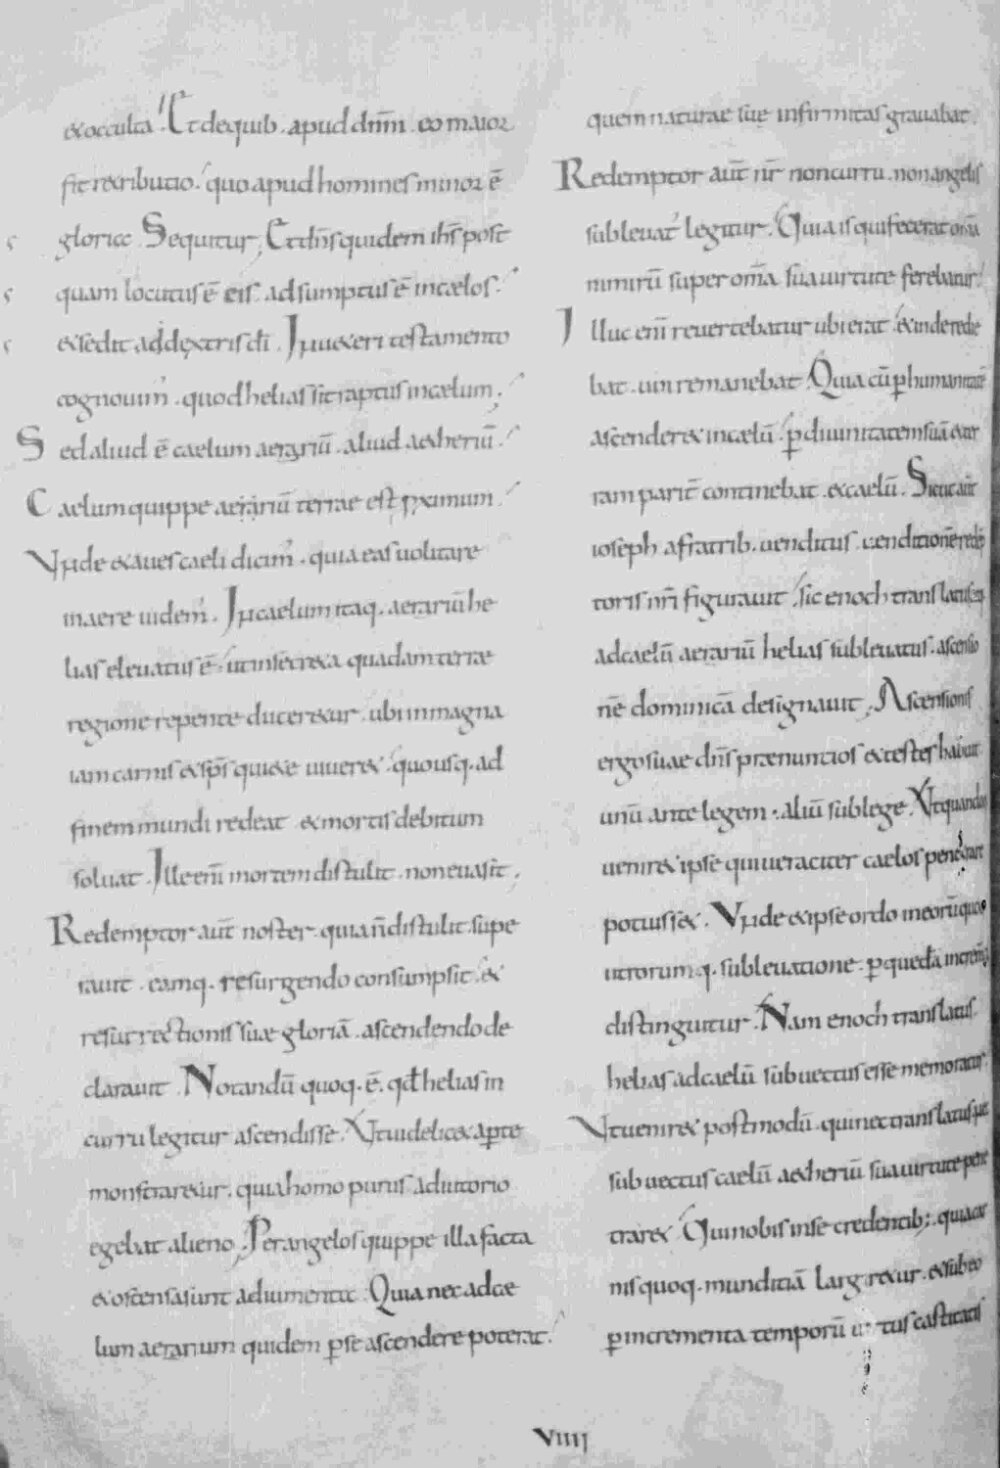 et occulta. Et de quib. apud dñm. eo maior
fit retributio. quo apud homines minor ē
gloria. Sequitur; Et dñs quidem ihs post
quam locutus ē eis. adsumptus ē in cælos.
et sedit ad dextris di. In veteri testamento
cognovim. quod helias sit raptus in cælum.
Sed aliud ē caelum aerariū. aliud aetheriū.
Caelum quippe aerariū terrae est pximum.
Vnde et aves caeli dicim. quia eas volitare
in aere videm. In caelum itaq. aerariū he
lias elevatus ē. ut in secreta quadam terræ
regione repente duceretur. ubi in magna
iam carnis et sps quiete viveret. quousq. ad
finem mundi redeat et mortis debitum
solvat. Ille enī mortem distulit. non evasit.
Redemptor aut̄ noster quia n̄ distulit. supe
ravit. eamq. resurgendo consumpsit. et
resurrectionis suæ gloriā. ascendendo de
claravit. Notandū quoq. ē. qđ helias in
curru legitur ascendisse. Vt videlicet aperte
monstraretur. quia homo purus adiutorio
egebat alieno. Per angelos quippe illa facta
et ostensa sunt adiumenta. Quia nec ad cæ
lum aerarium quidem pse ascendere poterat.
quem naturae suę infirmitas gravabat.
Redemptor aut̄ nr̄ non curru. non angelis
sublevat' legitur. Quia is qui fecerat omīa
nimirū super omīa sua virtute ferebatur.
Illuc enī revertebatur ubi erat. et inde redie
bat. ubi remanebat. Quia cū p humanitatē
ascenderet in cælū. p divinitatem suā et ter
ram parit̄ continebat. et caelū. Sicut aut̄
ioseph a fratrib. venditus. venditionē redēp
toris nrī figuravit. sic enoch translatus
ad caelū aerariū helias sublevatus. ascensio
nē dominicā designavit. Ascensionis
ergo suae dn̄s prænuntios et testes habuit.
unū ante legem. aliū sub lege. Vt quandoq
veniret ipse qui veraciter caelos penetrare
potuisset. Vnde et ipse ordo in eorū quoq
utrorumq. sublevatione. p quedā incremta
distinguitur. Nam enoch translatus.
helias ad caelū subvectus esse memoratur.
Vt veniret postmodū. qui nec translatus. nec
subvectus caelū aetheriū sua virtute pene
traret. Qui nobis in se credentib;. quia car
nis quoq. munditiā largiretur. et sub eo
p incrementa temporū virtus castitatis
VIIII